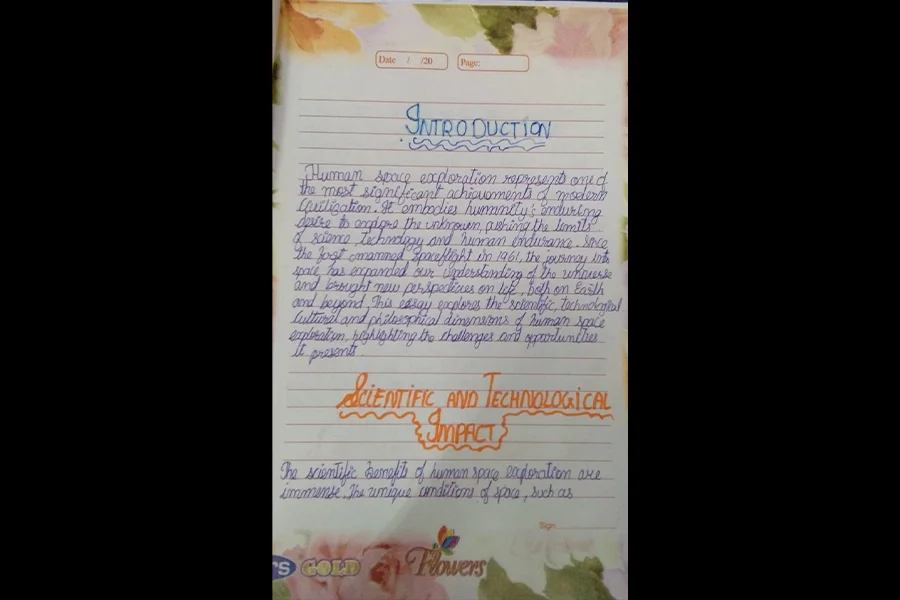 Date / /20 Page:
INTRODUCTION
Human space exploration represents one of
the most significant achievements of modern
Civilization. It embodies humanity's enduring
desire to explore the unknown, pushing the limits
of science, technology and human endurance. Since
the first manned spaceflight in 1961, the journey into
space has expanded our understanding of the universe
and brought new perspectives on life, both on Earth
and beyond. This essay explores the scientific, technological
Cultural and philosophical dimensions of human space
exploration, highlighting the challenges and opportunities
it presents.
SCIENTIFIC AND TECHNOLOGICAL
IMPACT
The scientific benefits of human space exploration are
immense. The unique conditions of space, such as
Sign
GOLD Flowers